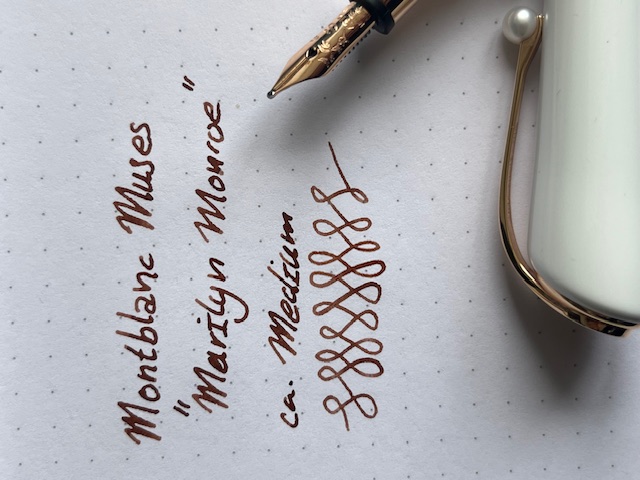 Montblanc Muses
"Marilyn Monroe"
ca. Medium